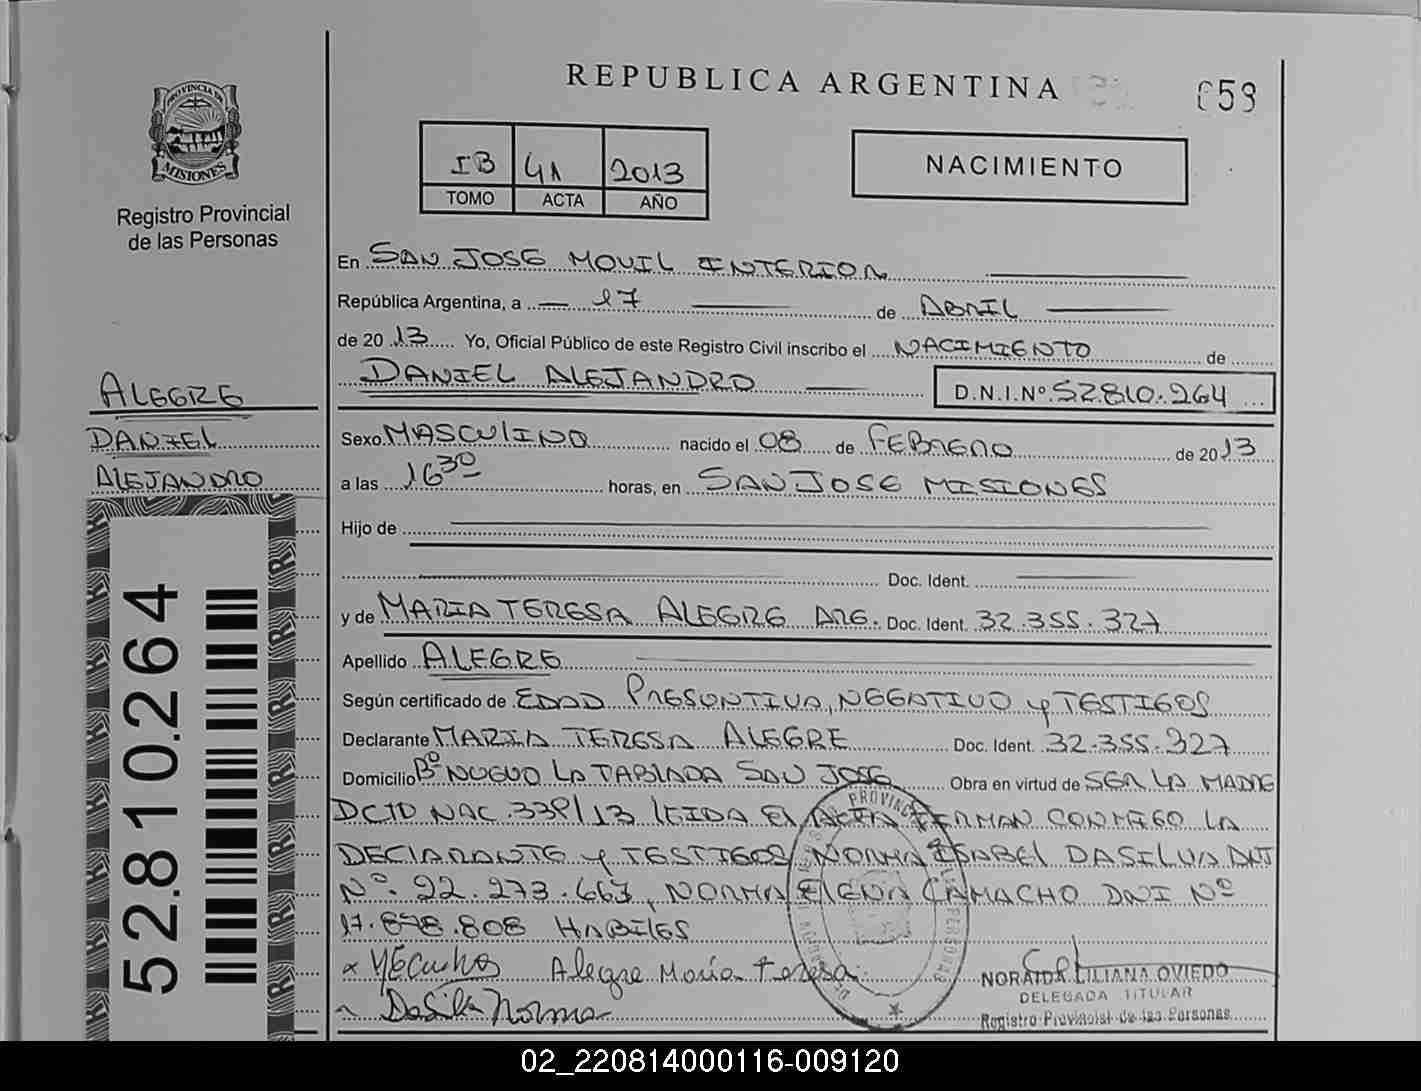 REPUBLICA ARGENTINA
059
PROVINCIA DE
MISIONES
Registro Provincial
de las Personas
IB 41 2013
TOMO ACTA AÑO
NACIMIENTO
En SAN JOSE MOVIL INTERIOR
República Argentina, a 17 de ABRIL
de 2013 Yo, Oficial Público de este Registro Civil inscribo el NACIMIENTO de
DANIEL ALEJANDRO D.N.I.Nº 52.810.264
ALEGRE
DANIEL
ALEJANDRO
Sexo MASCULINO nacido el 08 de FEBRERO de 2013
a las 16 30 horas, en SAN JOSE MISIONES
Hijo de
Doc. Ident.
y de MARIA TERESA ALEGRE ARG. Doc. Ident. 32.355.327
Apellido ALEGRE
Según certificado de EDAD PRESUNTIVA, NEGATIVO y TESTIGOS
Declarante MARIA TERESA ALEGRE Doc. Ident. 32.355.327
Domicilio Bº NUEVO LA TABLADA SAN JOSE Obra en virtud de SER LA MADRE
DCTO NAC. 339/13 LEIDA EL ACTA FIRMAN CONMIGO LA
DECLARANTE y TESTIGOS NORMA ISABEL DASILVA DNI
Nº. 22.273.667, NORMA ELENA CAMACHO DNI Nº
17.878.808 HABILES
Alegre María Teresa
Dasilva Norma
NORAIDA LILIANA OVIEDO
DELEGADA TITULAR
Registro Provincial de las Personas
52.810.264
02_220814000116-009120